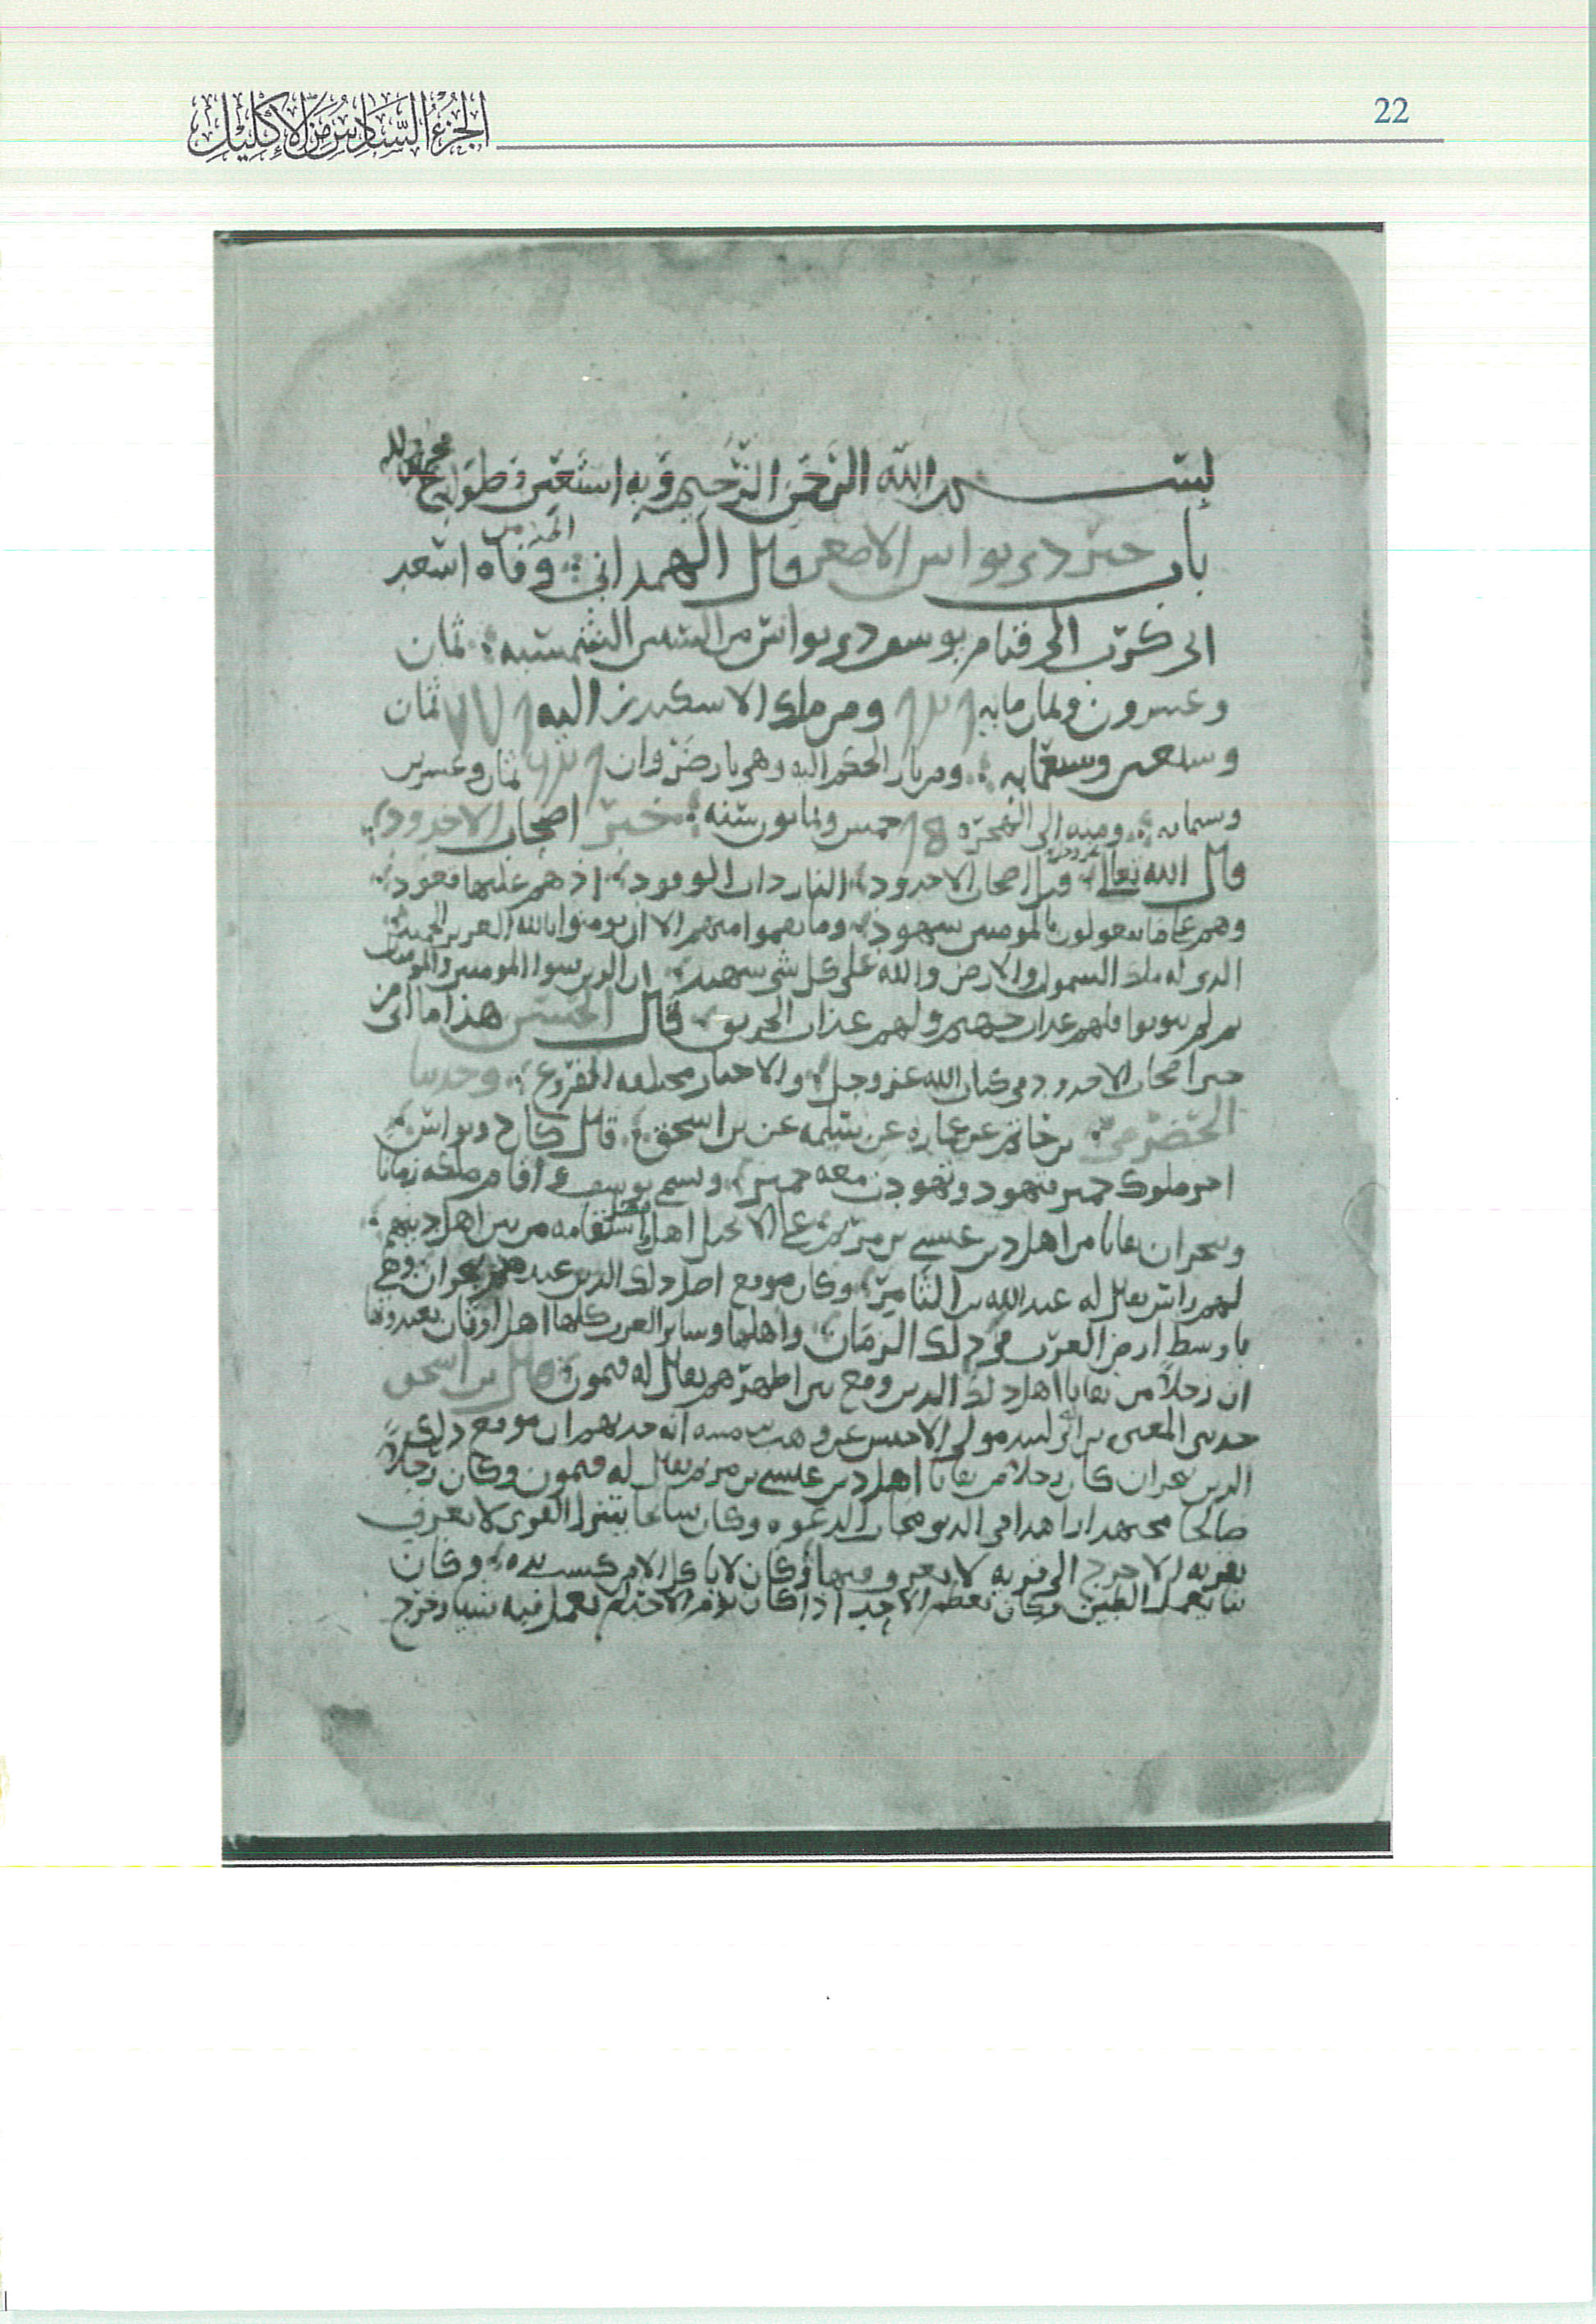 22
الجزء السادس من الإكليل
بسم الله الرحمن الرحيم وبه استعين
باب خبر ذي نواس الاصغر قال الهمداني وفاه اسعد
ابي كرب الى قيام يوسف ذي نواس من السنين الشمسيه ثمان
وعشرون وثمان مايه ومن ملك الاسكندر اليه ثمان
وسبعين وسبعمايه ومن بار الحضر اليه وهي بار ضروان ثمان وعشرين
وستمايه ومنه الى الهجره خمس وثمانون سنه خبر اصحاب الاخدود
قال الله تعالى قتل اصحاب الاخدود النار ذات الوقود اذ هم عليها قعود
وهم على ما يفعلون بالمومنين شهود وما نقموا منهم الا ان يومنوا بالله العزيز الحميد
الذي له ملك السموات والارض والله على كل شي شهيد ان الذين فتنوا المومنين والمومنات
ثم لم يتوبوا فلهم عذاب جهنم ولهم عذاب الحريق قال الحسن هذا ما اتى من
خبر اصحاب الاخدود في كتاب الله عز وجل والاخبار مختلفه الفروع وحدثنا
الخضر بن خازم عن عماره عن سلمه عن بن اسحق قال كان ذو نواس
اخر ملوك حمير فتهود وتهودت معه حمير وسمي يوسف فاقام في ملكه زمانا
وبنجران بقايا من اهل دين عيسى بن مريم على الانجيل اهل فضل واستقامه من بين اهل دينهم
لهم راس يقال له عبد الله بن الثامر وكان موقع اصل ذلك الدين عندهم بنجران وهي
باوسط ارض العرب في ذلك الزمان واهلها وساير العرب كلها اهل اوثان يعبدونها
ان رجلا من بقايا اهل ذلك الدين وقع بين اظهرهم يقال له فيمون قال بن اسحق
حدثني المغيره بن ابي لبيد مولى الاخنس عن وهب بن منبه انه حدثهم ان موقع ذلك
الدين بنجران كان رجلا من بقايا اهل دين عيسى بن مريم يقال له فيمون وكان رجلا
صالحا مجتهدا زاهدا في الدنيا مجاب الدعوه وكان سايحا ينزل القرى لا يعرف
بقريه الا خرج الى قريه لا يعرف فيها وكان لا ياكل الا من كسب يده وكان
بنا يعمل الطين وكان يعظم الاحد اذا كان يوم الاحد لم يعمل فيه شيا وخرج